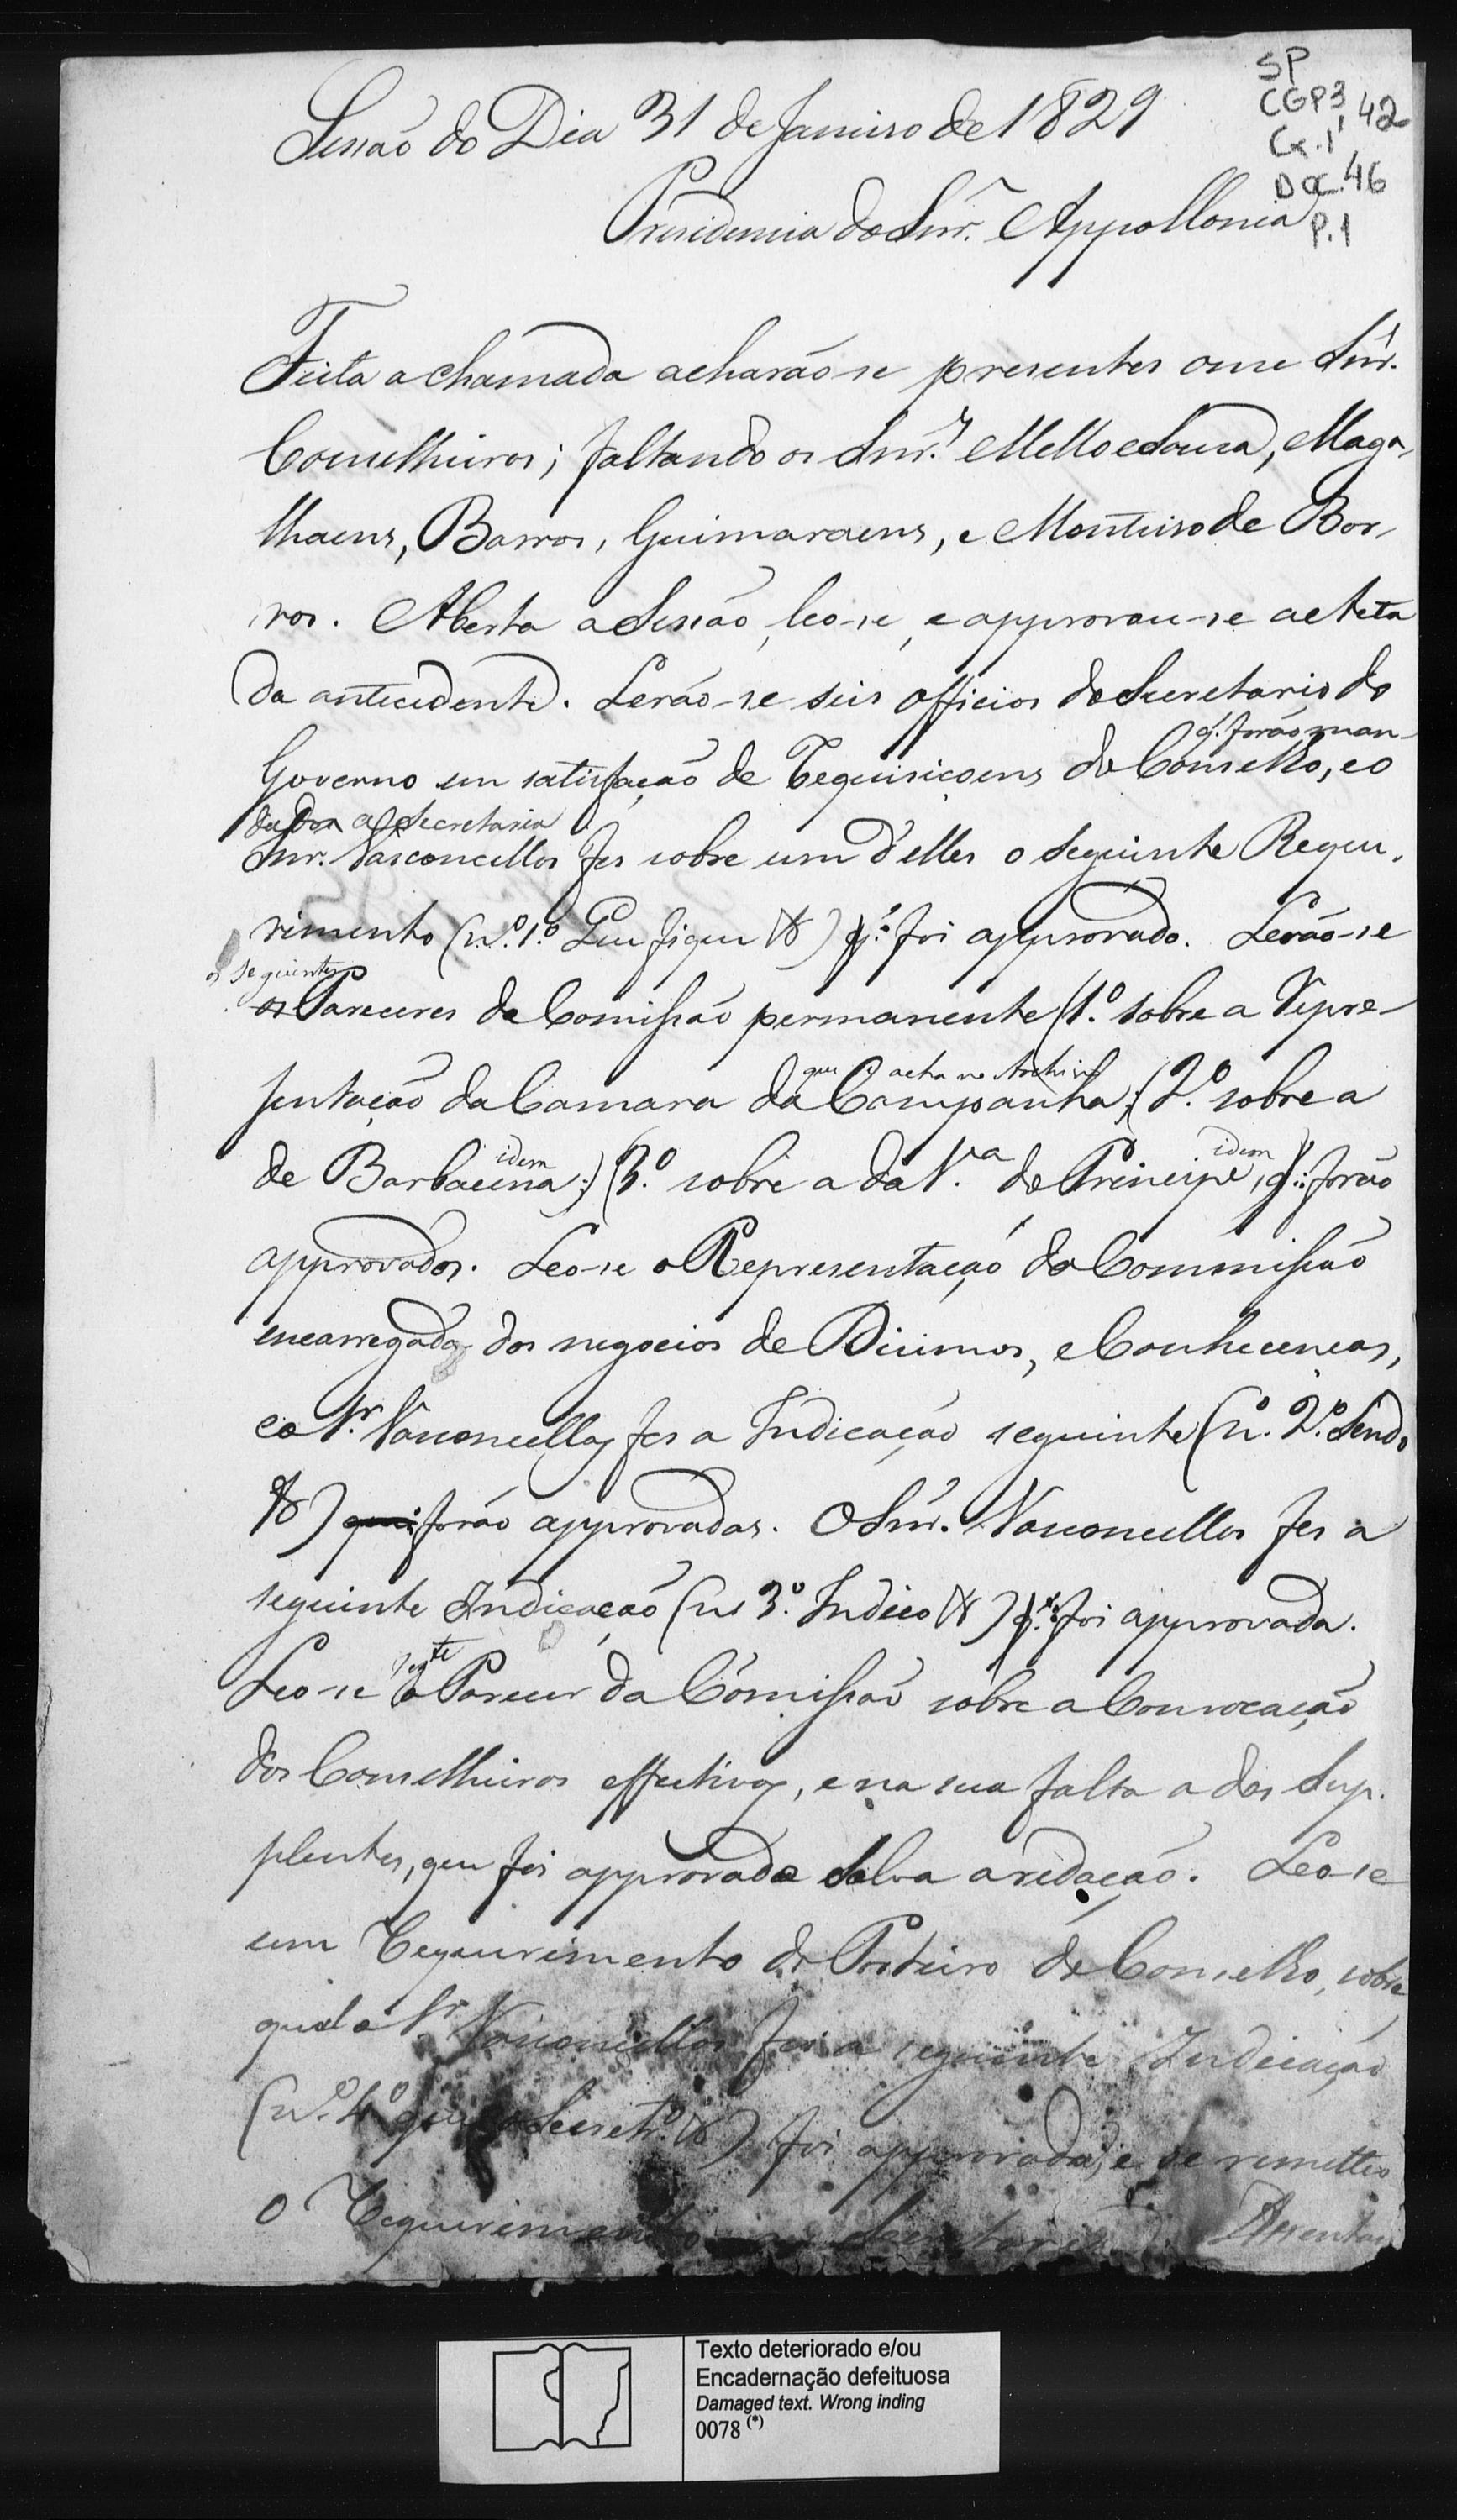 SP
CGP3, 42
Cx. 1
DOC. 46
P. 1
Sessão do Dia 31 de Janeiro de 1829
Presidencia do Snr. Appollonia
Feita a chamada acharão-se presentes onse Snr.
Conselheiros; faltando os Snr.s Mello e Sousa, Maga,
lhaens, Barros, Guimaraens, e Monteiro de Bar,
ros. Aberta a Sessão, leo-se, e approvou-se a Acta
da antecedente. Lerão-se seis officios do Secretario do
q. forão man-
Governo em satisfação de Requisiçoens do Conselho, e o
dados a Secretaria
Snr. Vasconcellos fes sobre um d'elles o seguinte Reque,
rimento (n.º 1.º Que fique &) q. foi approvado. Lerão-se
os seguintes
os Pareceres da Comissão permanente (1.º sobre a Repre-
que acha no Archivo
sentação da Camara da Campanha;) (2.º sobre a
idem idem
de Barbacena:) (3.º sobre a da V.ª do Principe, q. forão
approvados. Leo-se a Representação da Commissão
encarregada dos negocios de Disimos, e Conhecenças,
e o Sr. Vasconcellos fes a Indicação seguinte (n.º 2.º Sendo
&) que forão approvadas. O Snr. Vasconcellos fes a
seguinte Indicação (n.º 3.º Indico &) q. foi approvada.
seg.te
Leo-se o Parecer da Comissão sobre a Convocação
dos Conselheiros effectivos, e na sua falta a dos Sup.
plentes, que foi approvado salva a redação. Leo-se
um Requerimento do Porteiro do Conselho, sobre
qual o Sr. Vasconcellos fes a seguinte Indicação
(n.º 4.º que o Secretr.º &) foi approvada, e se remetteo
o Requerimento a Secretaria.
Texto deteriorado e/ou
Encadernação defeituosa
Damaged text. Wrong inding
0078 (*)